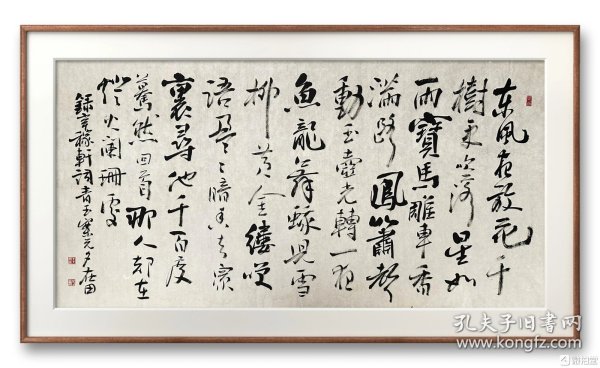 东風夜放花千
樹更吹落星如
雨寶馬雕車香
满路鳳簫聲
動玉壺光轉一夜
魚龍舞蛾兒雪
柳黄金縷笑
語盈〻暗香去衆
裏尋他千百度
驀然回首那人却在
燈火阑珊處
録辛稼軒詞青玉案元夕在田
孔夫子旧书网
www.kongfz.com
微拍堂